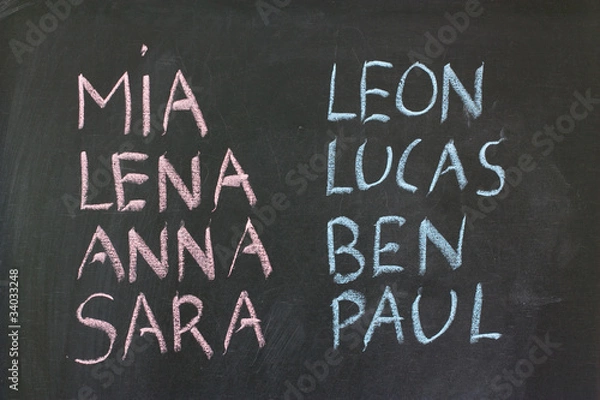 MiA
LENA
ANNA
SARA
LEON
LUCAS
BEN
PAUL
Adobe Stock | #34033248